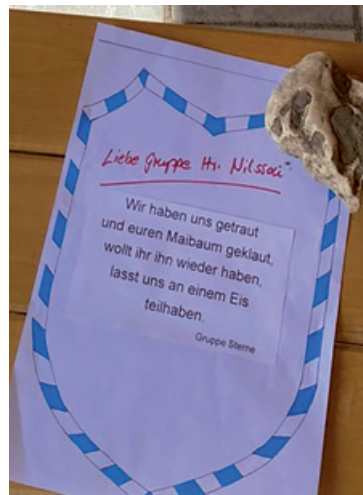 Liebe Gruppe Hr. Nilsson"
Wir haben uns getraut
und euren Maibaum geklaut,
wollt ihr ihn wieder haben,
lasst uns an einem Eis
teilhaben.
Gruppe Sterne